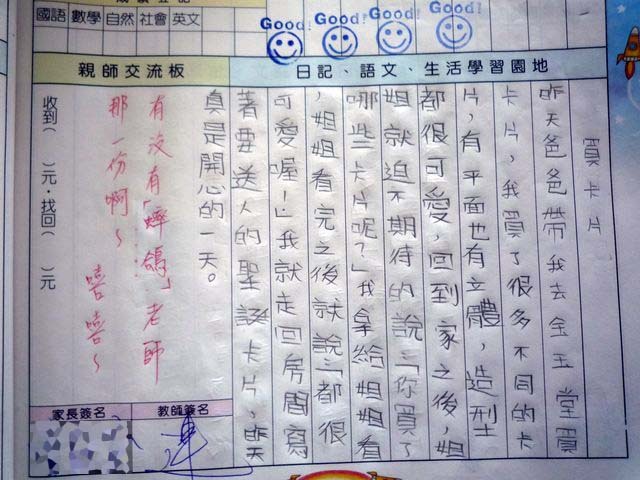 國語 數學 自然 社會 英文
Good! Good! Good! Good!
日記、語文、生活學習園地
買卡片
昨天爸爸帶我去金玉堂買
卡片，我買了很多不同的卡
片，有平面也有立體，造型
都很可愛，回到家之後，姐
姐就迫不期待的說：「你買了
哪些卡片呢？」我拿給姐姐看
，姐姐看完之後就說：「都很
可愛喔！」我就走回房間寫
著要送人的聖誕卡片，昨天
真是開心的一天。
親師交流板
有沒有「蟀鴿」老師
那一份啊～
嘻嘻～
收到（ ）元，找回（ ）元
教師簽名
家長簽名
連